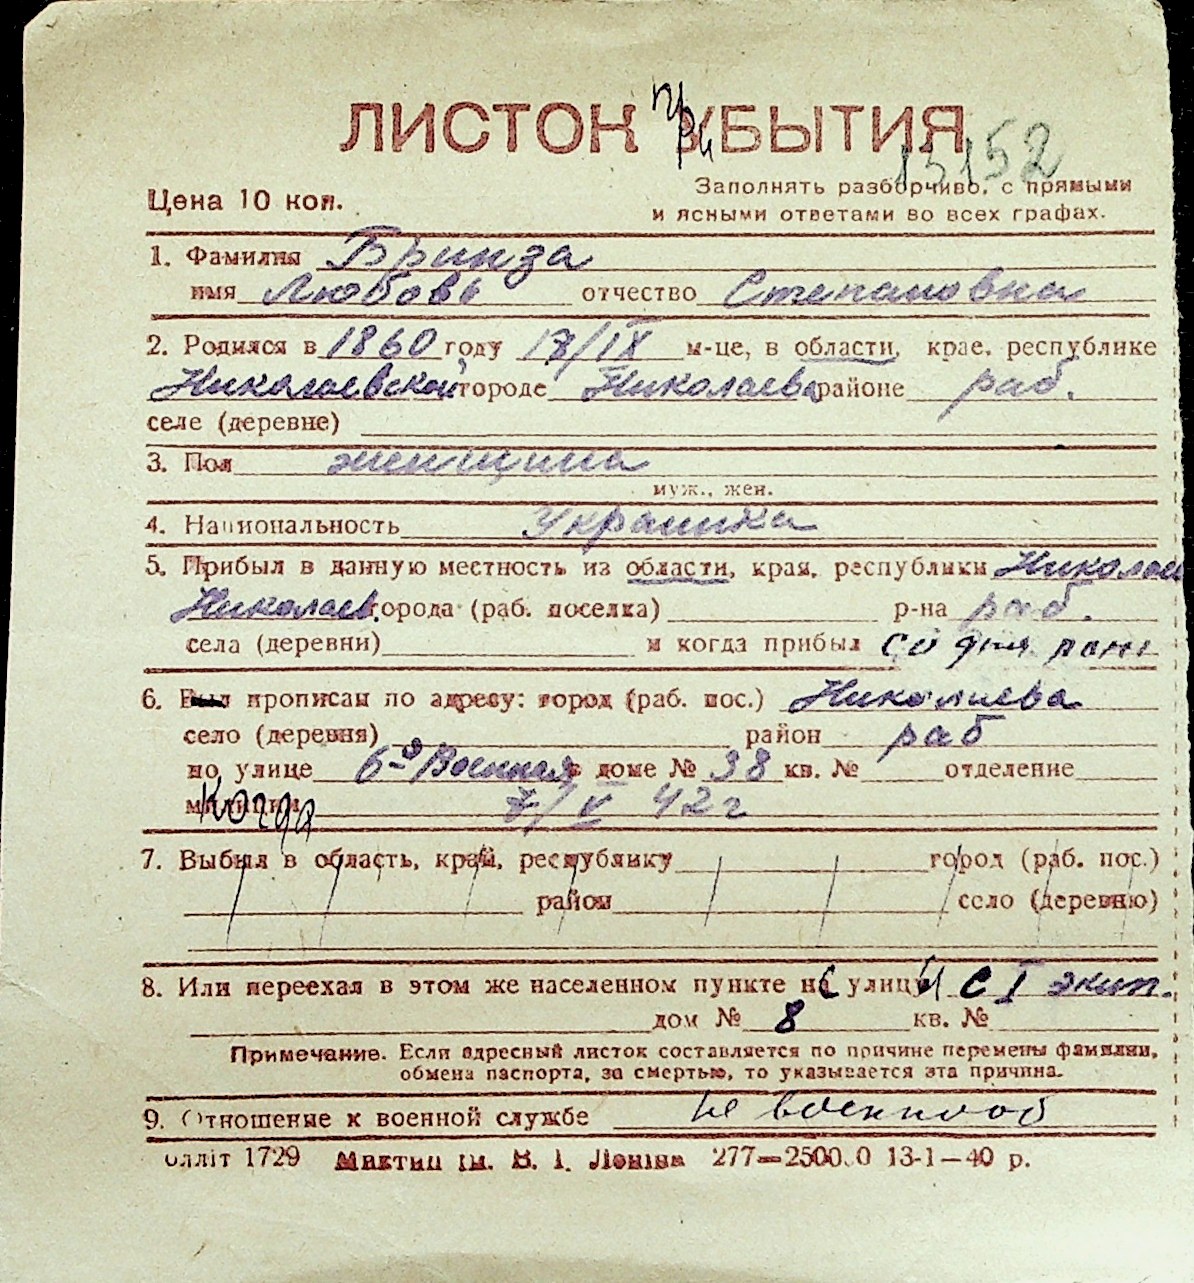 ЛИСТОК при УБЫТИЯ
15152
Цена 10 коп.
Заполнять разборчиво, с прямыми
и ясными ответами во всех графах.
1. Фамилия Бринза
имя Любовь отчество Степановна
2. Родился в 1860 году 17/IX м-це, в области, крае, республике
Николаевской городе Николаева районе раб.
селе (деревне)
3. Пол женщина
муж., жен.
4. Национальность Украинка
5. Прибыл в данную местность из области, края, республики Николаев
Николаев. города (раб. поселка) р-на раб.
села (деревни) и когда прибыл со дня рож
6. Был прописан по адресу: город (раб. пос.) Николаева
село (деревня) район раб
по улице 6-я Военная в доме № 38 кв. № отделение
милиции Когда 7/V 42 г
7. Выбыл в область, край, республику город (раб. пос.)
район село (деревню)
8. Или переехал в этом же населенном пункте с улицы с I экип.
дом № 8 кв. №
Примечание. Если адресный листок составляется по причине перемены фамилии,
обмена паспорта, за смертью, то указывается эта причина.
9. Отношение к военной службе не военнооб
блліт 1729 Миктип ім. В. І. Леніна 277—2500.0 13-1—40 р.